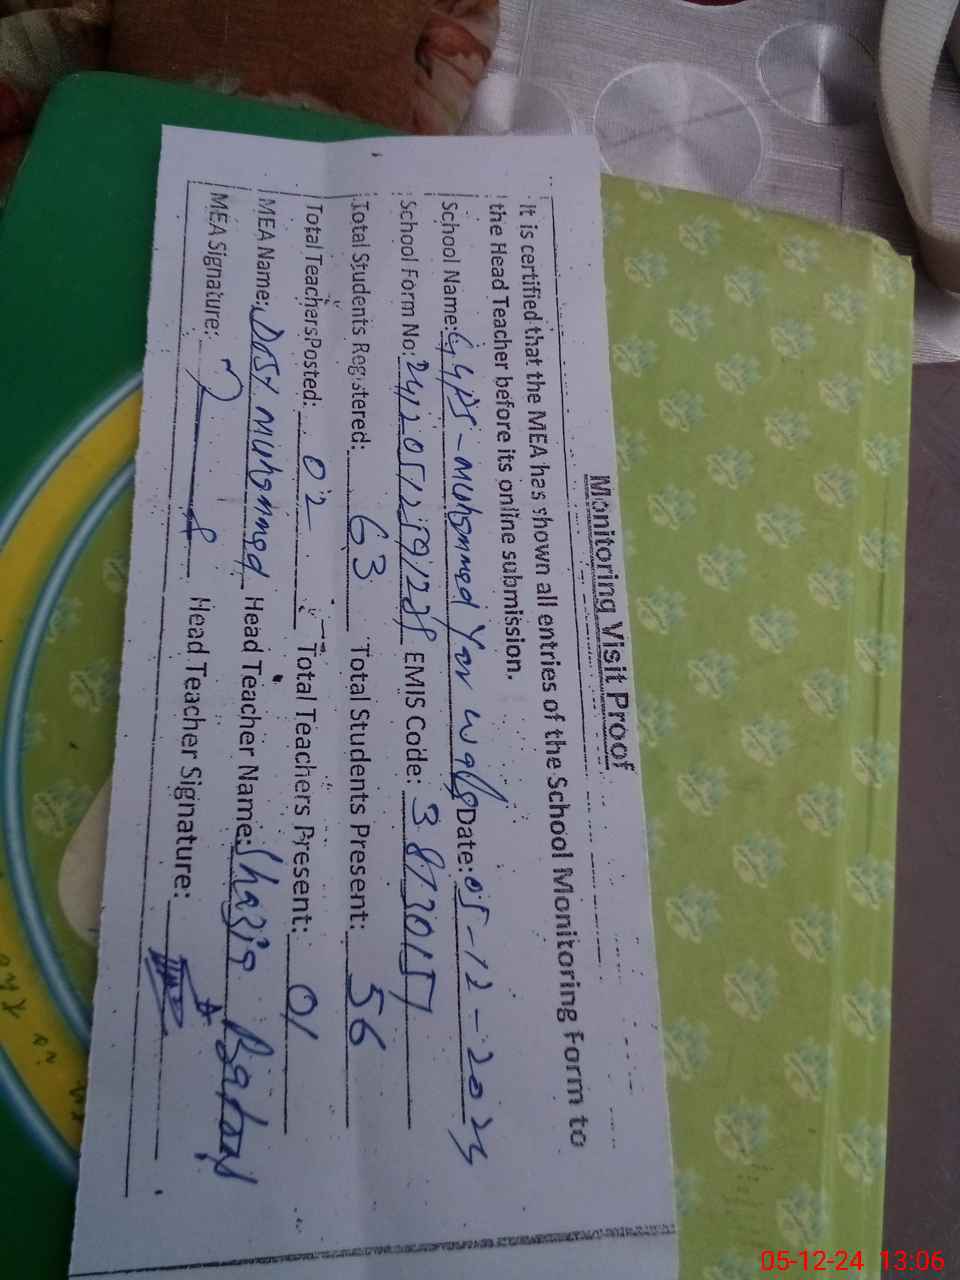 Monitoring Visit Proof
It is certified that the MEA has shown all entries of the School Monitoring Form to
the Head Teacher before its online submission.
School Name: GGPS - Muhammad Yar Wala Date: 05-12-2023
School Form No: EMIS Code:
Total Students Registered: 63 Total Students Present: 56
Total Teachers Posted: 02 Total Teachers Present: 01
MEA Name: Dost Muhammad Head Teacher Name: Shazia
MEA Signature: Head Teacher Signature:
05-12-24 13:06